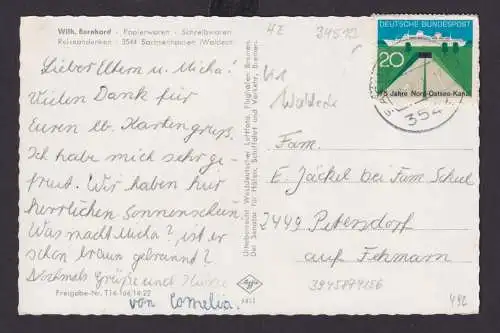 Wilh. Bernhard · Papierwaren - Schreibwaren
Reiseandenken · 3544 Sachsenhausen (Waldeck)
Lieber Eltern u. Micha!
Vielen Dank für
Euren lb. Kartengruß.
Ich habe mich sehr ge-
freut. Wir haben hier
herrlichen Sonnenschein.
Was macht Micha? ist er
schon braun gebrannt?
Nochmals Grüße und Küsse
von Cornelia.
Freigabe-Nr. T
Urheberrecht Westdeutscher Luftfoto, Flughafen Bremen.
Der Senator für Häfen, Schiffahrt und Verkehr, Bremen.
Agfa
HZ
34513
b1
Waldeck
DEUTSCHE BUNDESPOST
20
75 Jahre Nord-Ostsee-Kanal
354
Fam.
E. Jäckel bei Fam. Schul
2449 Petersdorf
auf Fehmarn
3945899656
492